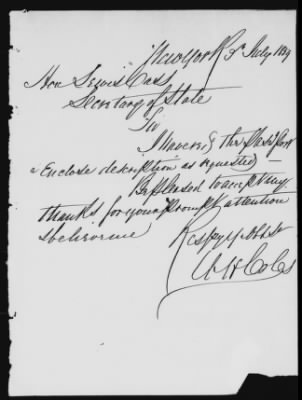 New York 5th July 1859
Hon Lewis Cass
Secretary of State
Sir
I have recd the Passport
& Enclose description as requested
Be pleased to accept my
thanks for your prompt attention
& believe me
Respy Yr Obt St
W H Coles